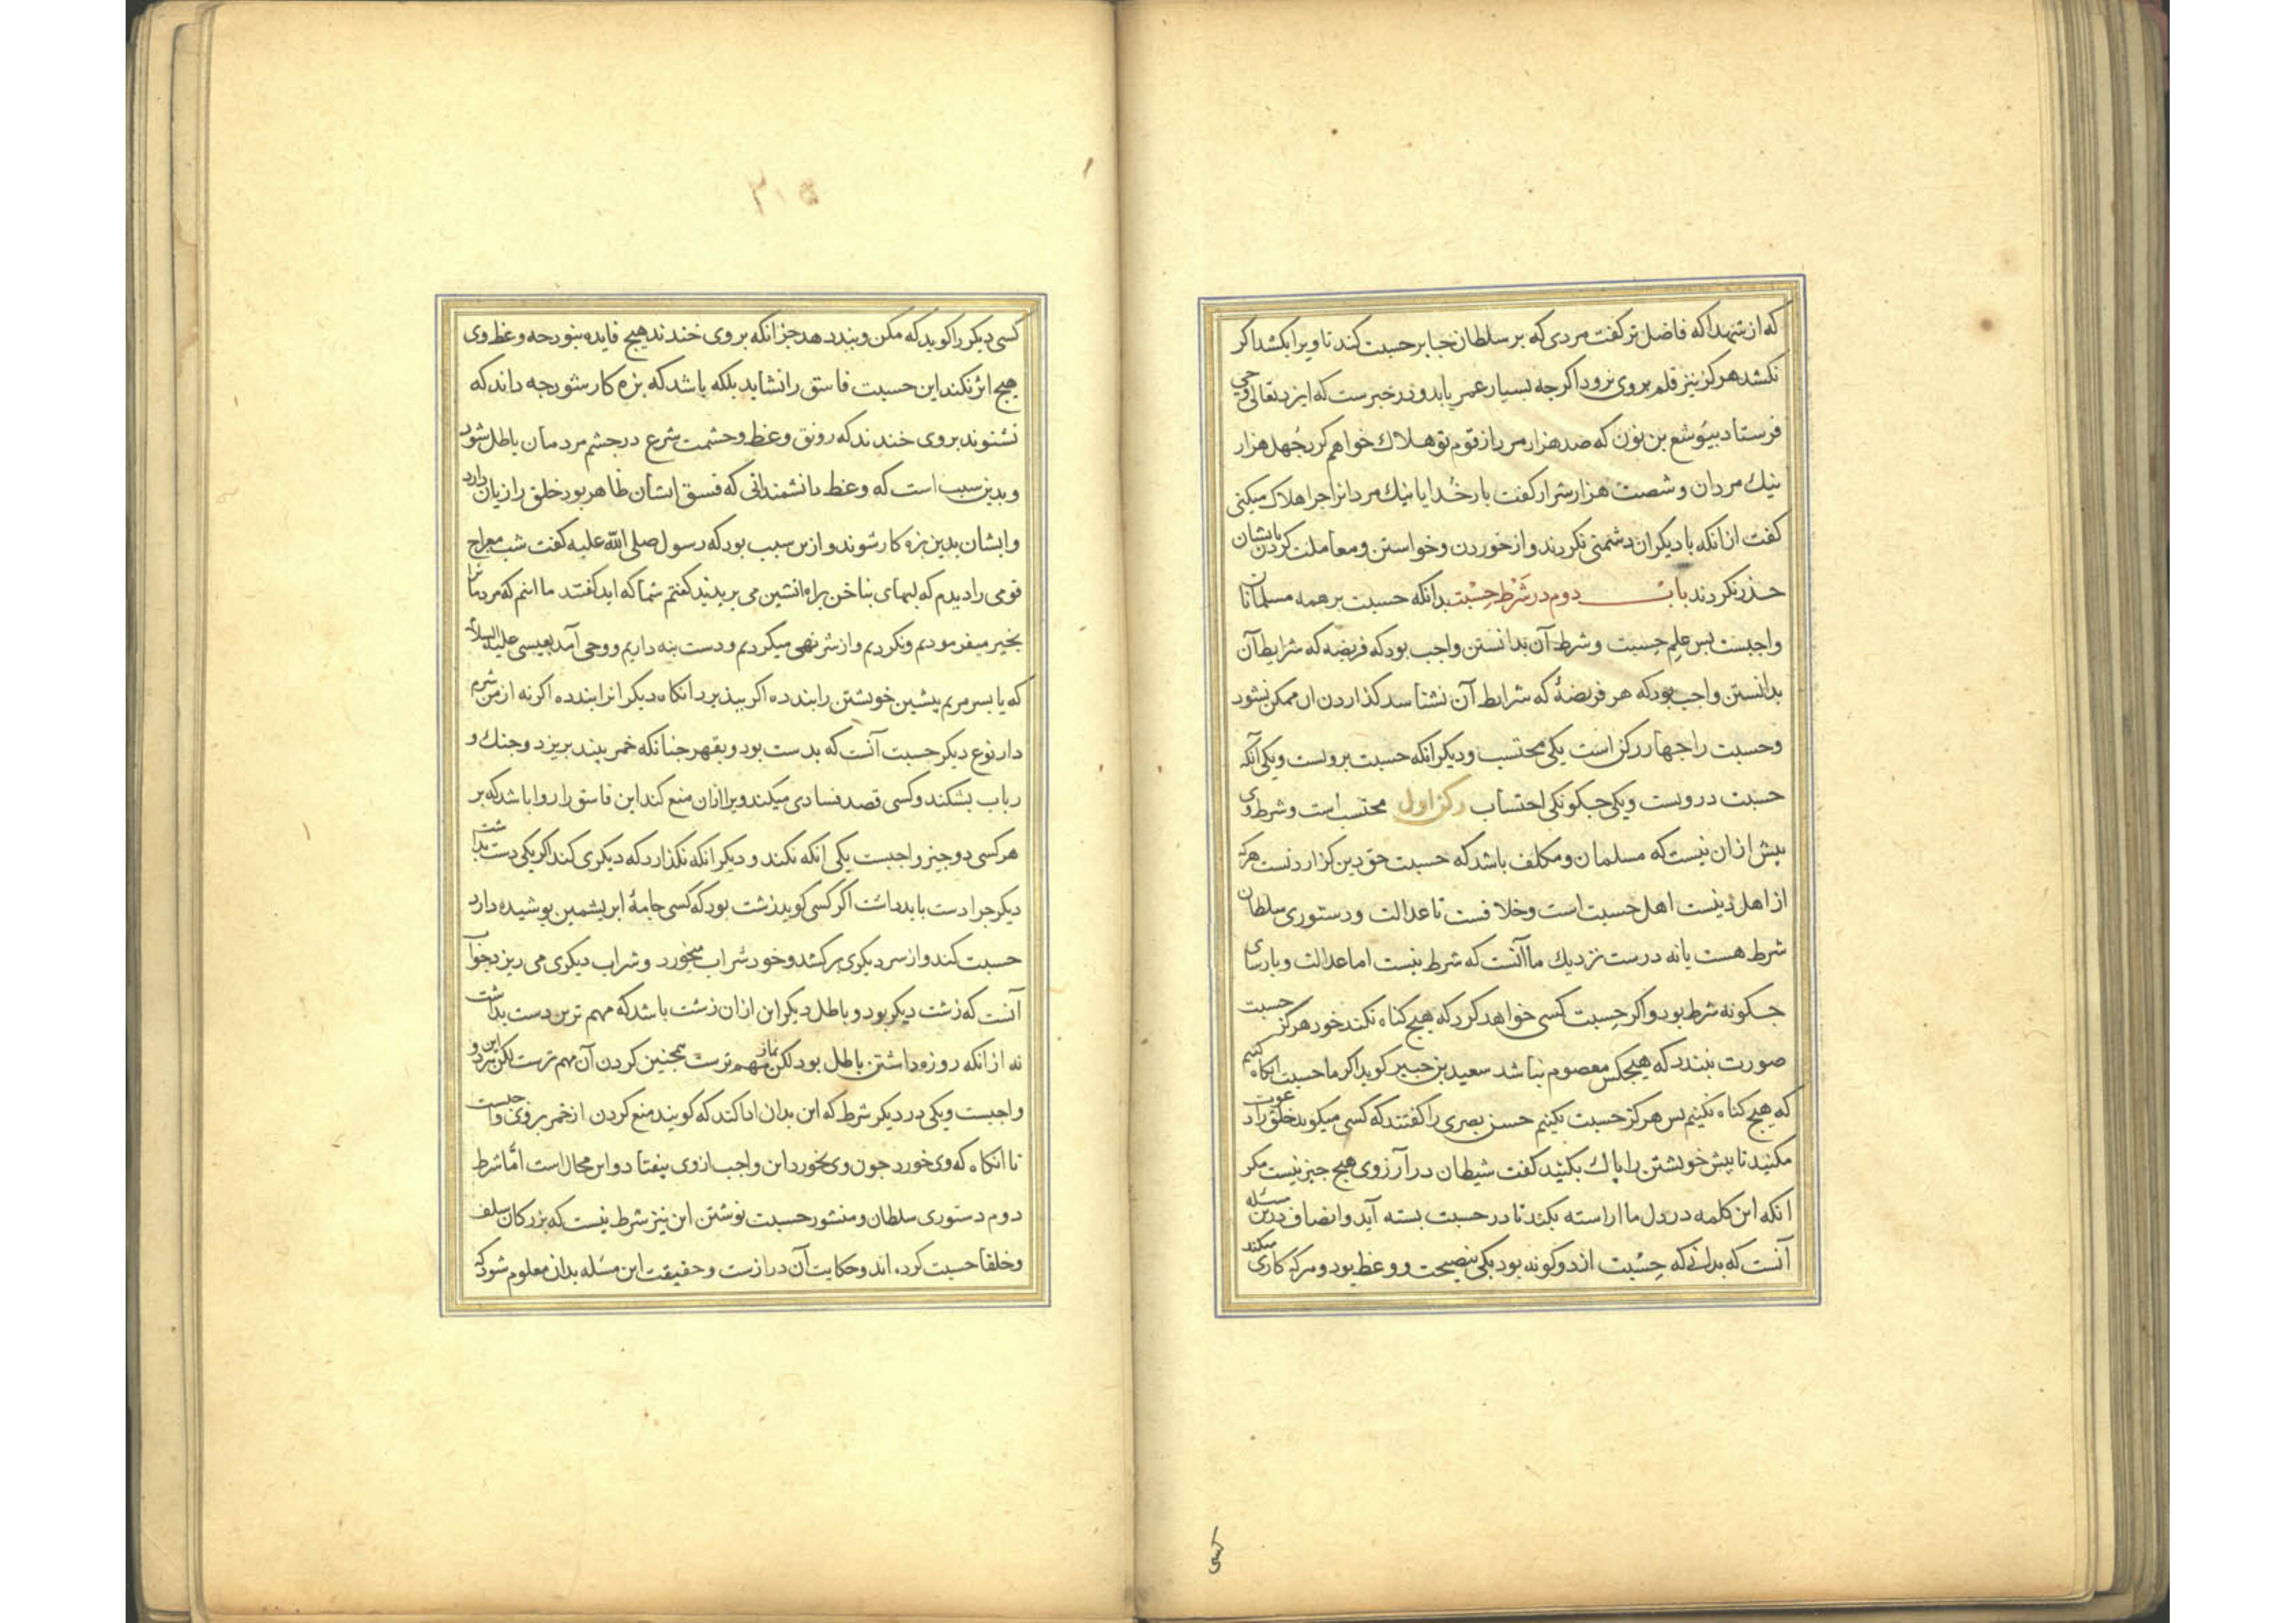 که از شهدا که فاضل تر گفت مردی که بر سلطان جابر حسبت کند تا ویرا بکشد اکر
نکشد هرکز نیز قلم بر وی نرود اکرجه بسیار عمر یابد و در خبرست که ایزد تعالی وحی
فرستاد بیوشع بن نون که صد هزار مرد از قوم تو هلاک خواهم کرد جهل هزار
نیک مردان و شصت هزار شرار کفت بار خدایا نیک مردانرا جرا هلاک میکنی
کفت از انکه با دیکران دشمنی نکردند و از خوردن و خواستن و معاملت کردن بایشان
حذر نکردند باب دوم در شرط حسبت بدانکه حسبت بر همه مسلمانان
واجبست بس علم حسبت و شرط آن بدانستن واجب بود که فریضه که شرایط آن
بدانستن واجب بود که هر فریضهٔ که شرایط آن نشناسد کذاردن ان ممکن نشود
و حسبت را جهار رکن است یکی محتسب و دیکر انکه حسبت بر وست و یکی آنکه
حسبت در وست و یکی جکونکی احتساب رکن اول محتسب است و شرط وی
بیش ازان نیست که مسلمان و مکلف باشد که حسبت حق دین کزاردنست هرکه
از اهل دینست اهل حسبت است و خلافست تا عدالت و دستوری سلطان
شرط هست یا نه درست نزدیک ما آنست که شرط نیست اما عدالت و بارسای
جکونه شرط بود و اکر حسبت کسی خواهد کرد که هیچ کناه نکند خود هرکز حسبت
صورت نبندد که هیچکس معصوم نباشد سعید بن جبیر کوید اکر ما حسبت انکاه کنیم
که هیچ کناه نکنیم بس هرکز حسبت نکنیم حسن بصری را کفتند که کسی میکوید خلق را دعوت
مکنید تا بیش خویشتن را پاک بکنید کفت شیطان در آرزوی هیچ جیز نیست مکر
انکه این کلمه در دل ما اراسته بکند تا در حسبت بسته آید و انصاف درین مسئله
آنست که بدانی که حسبت از دو کونه بود یکی بنصیحت و وعظ بود و هرکه کاری میکند
کسی
۳۱۵
کسی دیکر را کوید که مکن و بند دهد جز انکه بر وی خندند هیچ فایده نبود جه وعظ وی
هیچ اثر نکند این حسبت فاسق را نشاید بلکه باشد که بزه کار شود جه داند که
نشنوند بر وی خندند که رونق وعظ و حشمت شرع در جشم مردمان باطل شود
و بدین سبب است که وعظ دانشمندانی که فسق ایشان ظاهر بود خلق را زیان دارد
و ایشان بدین بزه کار شوند و ازین سبب بود که رسول صلی الله علیه کفت شب معراج
قومی را دیدم که لبهای بناخن براه اتشین می بریدند کفتم شما که اید کفتند ما انیم که مردمانرا
بخیر میفرمودیم و نکردیم و از شر نهی میکردیم و دست بنه داریم و وحی آمد بعیسی علیه السلام
که یا بسر مریم بیشین خویشتن را بند ده اکر ببذیرد انکاه دیکرانرا بند ده اکر نه از من شرم
دار نوع دیکر حسبت آنست که بدست بود و بقهر جنانکه خمر بیند بریزد و جنک و
رباب بشکند و کسی قصد فسادی میکند ویرا ازان منع کند این فاسق را روا باشد که بر
هر کسی دو جیز واجبست یکی انکه نکند و دیکر انکه نکذارد که دیکری کند اکر یکی دست بداشت
دیکر جرا دست باید داشت اکر کسی کوید زشت بود که کسی جامهٔ ابریشمین بوشیده دارد
حسبت کند و از سر دیکری برکشد و خود شراب میخورد و شراب دیکری می ریزد جواب
آنست که زشت دیکر بود و باطل دیکر این ازان زشت باشد که مهم ترین دست بداشت
نه از انکه روزه داشتن باطل بود لکن نماز مهم ترست همجنین کردن آن مهم ترست لکن هر دو
واجبست و یکی در دیکر شرط که این بدان ادا کند که کویند منع کردن از خمر بر وی واجبست
تا انکاه که وی خورد جون وی بخورد این واجب از وی بیفتاد و این محال است اما شرط
دوم دستوری سلطان و منشور حسبت نوشتن این نیز شرط نیست که بزرکان سلف
و خلفا حسبت کرده اند و حکایت آن درازست و حقیقت این مسئله بدان معلوم شود که